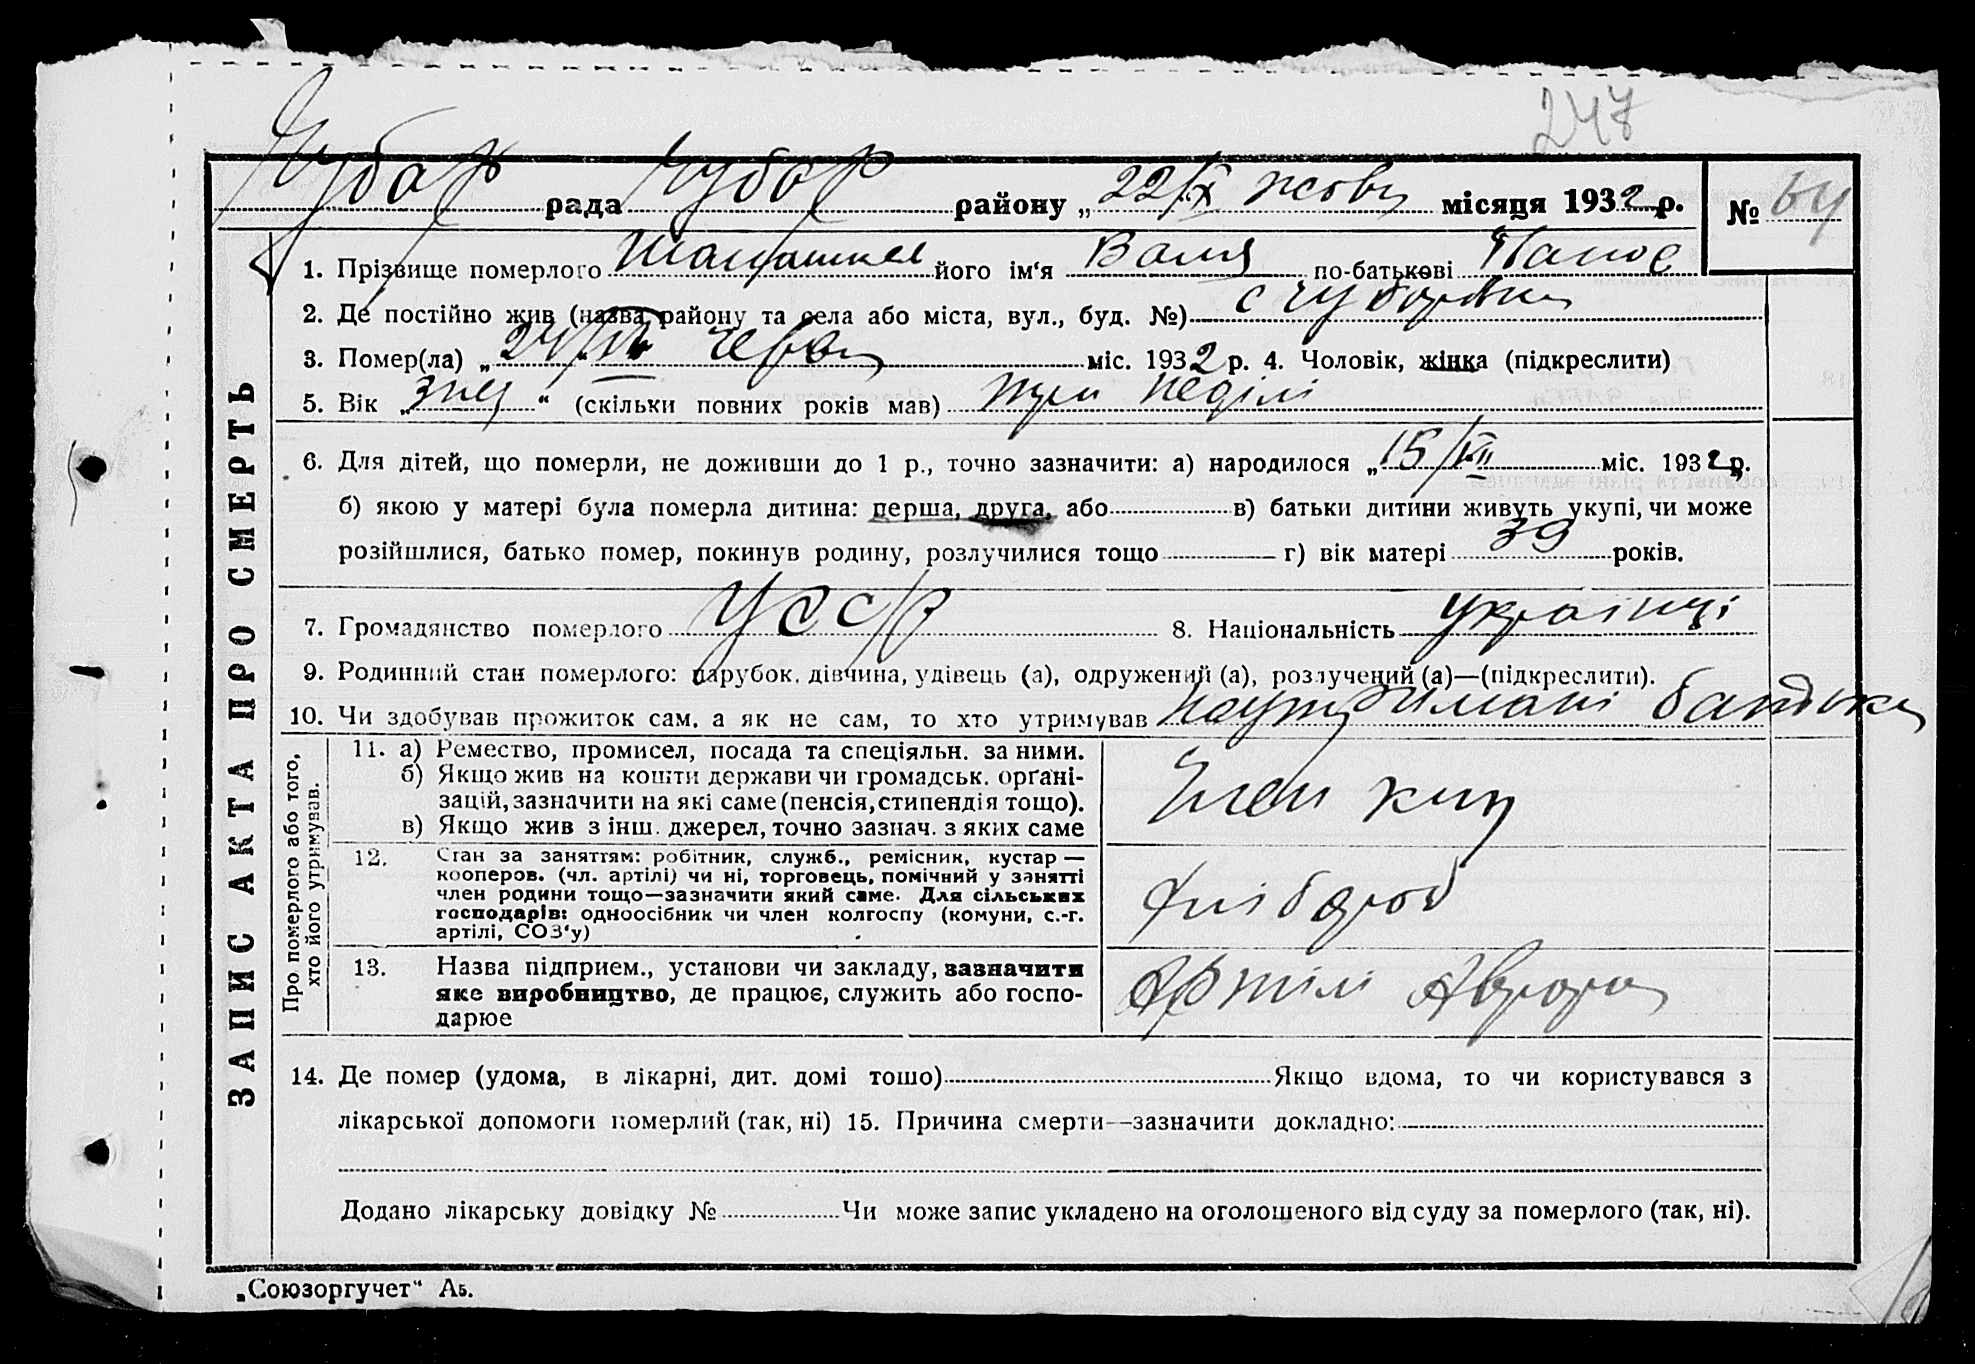 247
Чубар рада Чубар району „22/IX жовт місяця 1932 р. № 64
1. Прізвище померлого його ім'я Валя по-батькові
2. Де постійно жив (назва району та села або міста, вул., буд. №) с Чубарівка
3. Помер(ла) „24 черв міс. 1932 р. 4. Чоловік, жінка (підкреслити)
5. Вік „3 нед“ (скільки повних років мав) три неділі
6. Для дітей, що померли, не доживши до 1 р., точно зазначити: а) народилося „15/VII міс. 1932 р.
б) якою у матері була померла дитина: перша, друга, або в) батьки дитини живуть укупі, чи може
розійшлися, батько помер, покинув родину, розлучилися тощо г) вік матері 39 років.
7. Громадянство померлого УССР 8. Національність українці
9. Родинний стан померлого: парубок, дівчина, удівець (а), одружений (а), розлучений (а)—(підкреслити).
10. Чи здобував прожиток сам, а як не сам, то хто утримував
ЗАПИС АКТА ПРО СМЕРТЬ
Про померлого або того,
хто його утримував.
11. а) Ремество, промисел, посада та спеціяльн. за ними.
б) Якщо жив на кошти держави чи громадськ. орґані-
зацій, зазначити на які саме (пенсія, стипендія тощо).
в) Якщо жив з інш. джерел, точно зазнач. з яких саме
12. Стан за заняттям: робітник, служб., ремісник, кустар —
кооперов. (чл. артілі) чи ні, торговець, помічний у занятті
член родини тощо—зазначити який саме. Для сільських
господарів: одноосібник чи член колгоспу (комуни, с.-г.
артілі, СОЗ'у)
13. Назва підприєм., установи чи закладу, зазначити
яке виробництво, де працює, служить або госпо-
дарює
Артілі Аврора
14. Де помер (удома, в лікарні, дит. домі тощо) Якщо вдома, то чи користувався з
лікарської допомоги померлий (так, ні) 15. Причина смерти—зазначити докладно:
Додано лікарську довідку № Чи може запис укладено на оголошеного від суду за померлого (так, ні).
„Союзоргучет“ Аб.